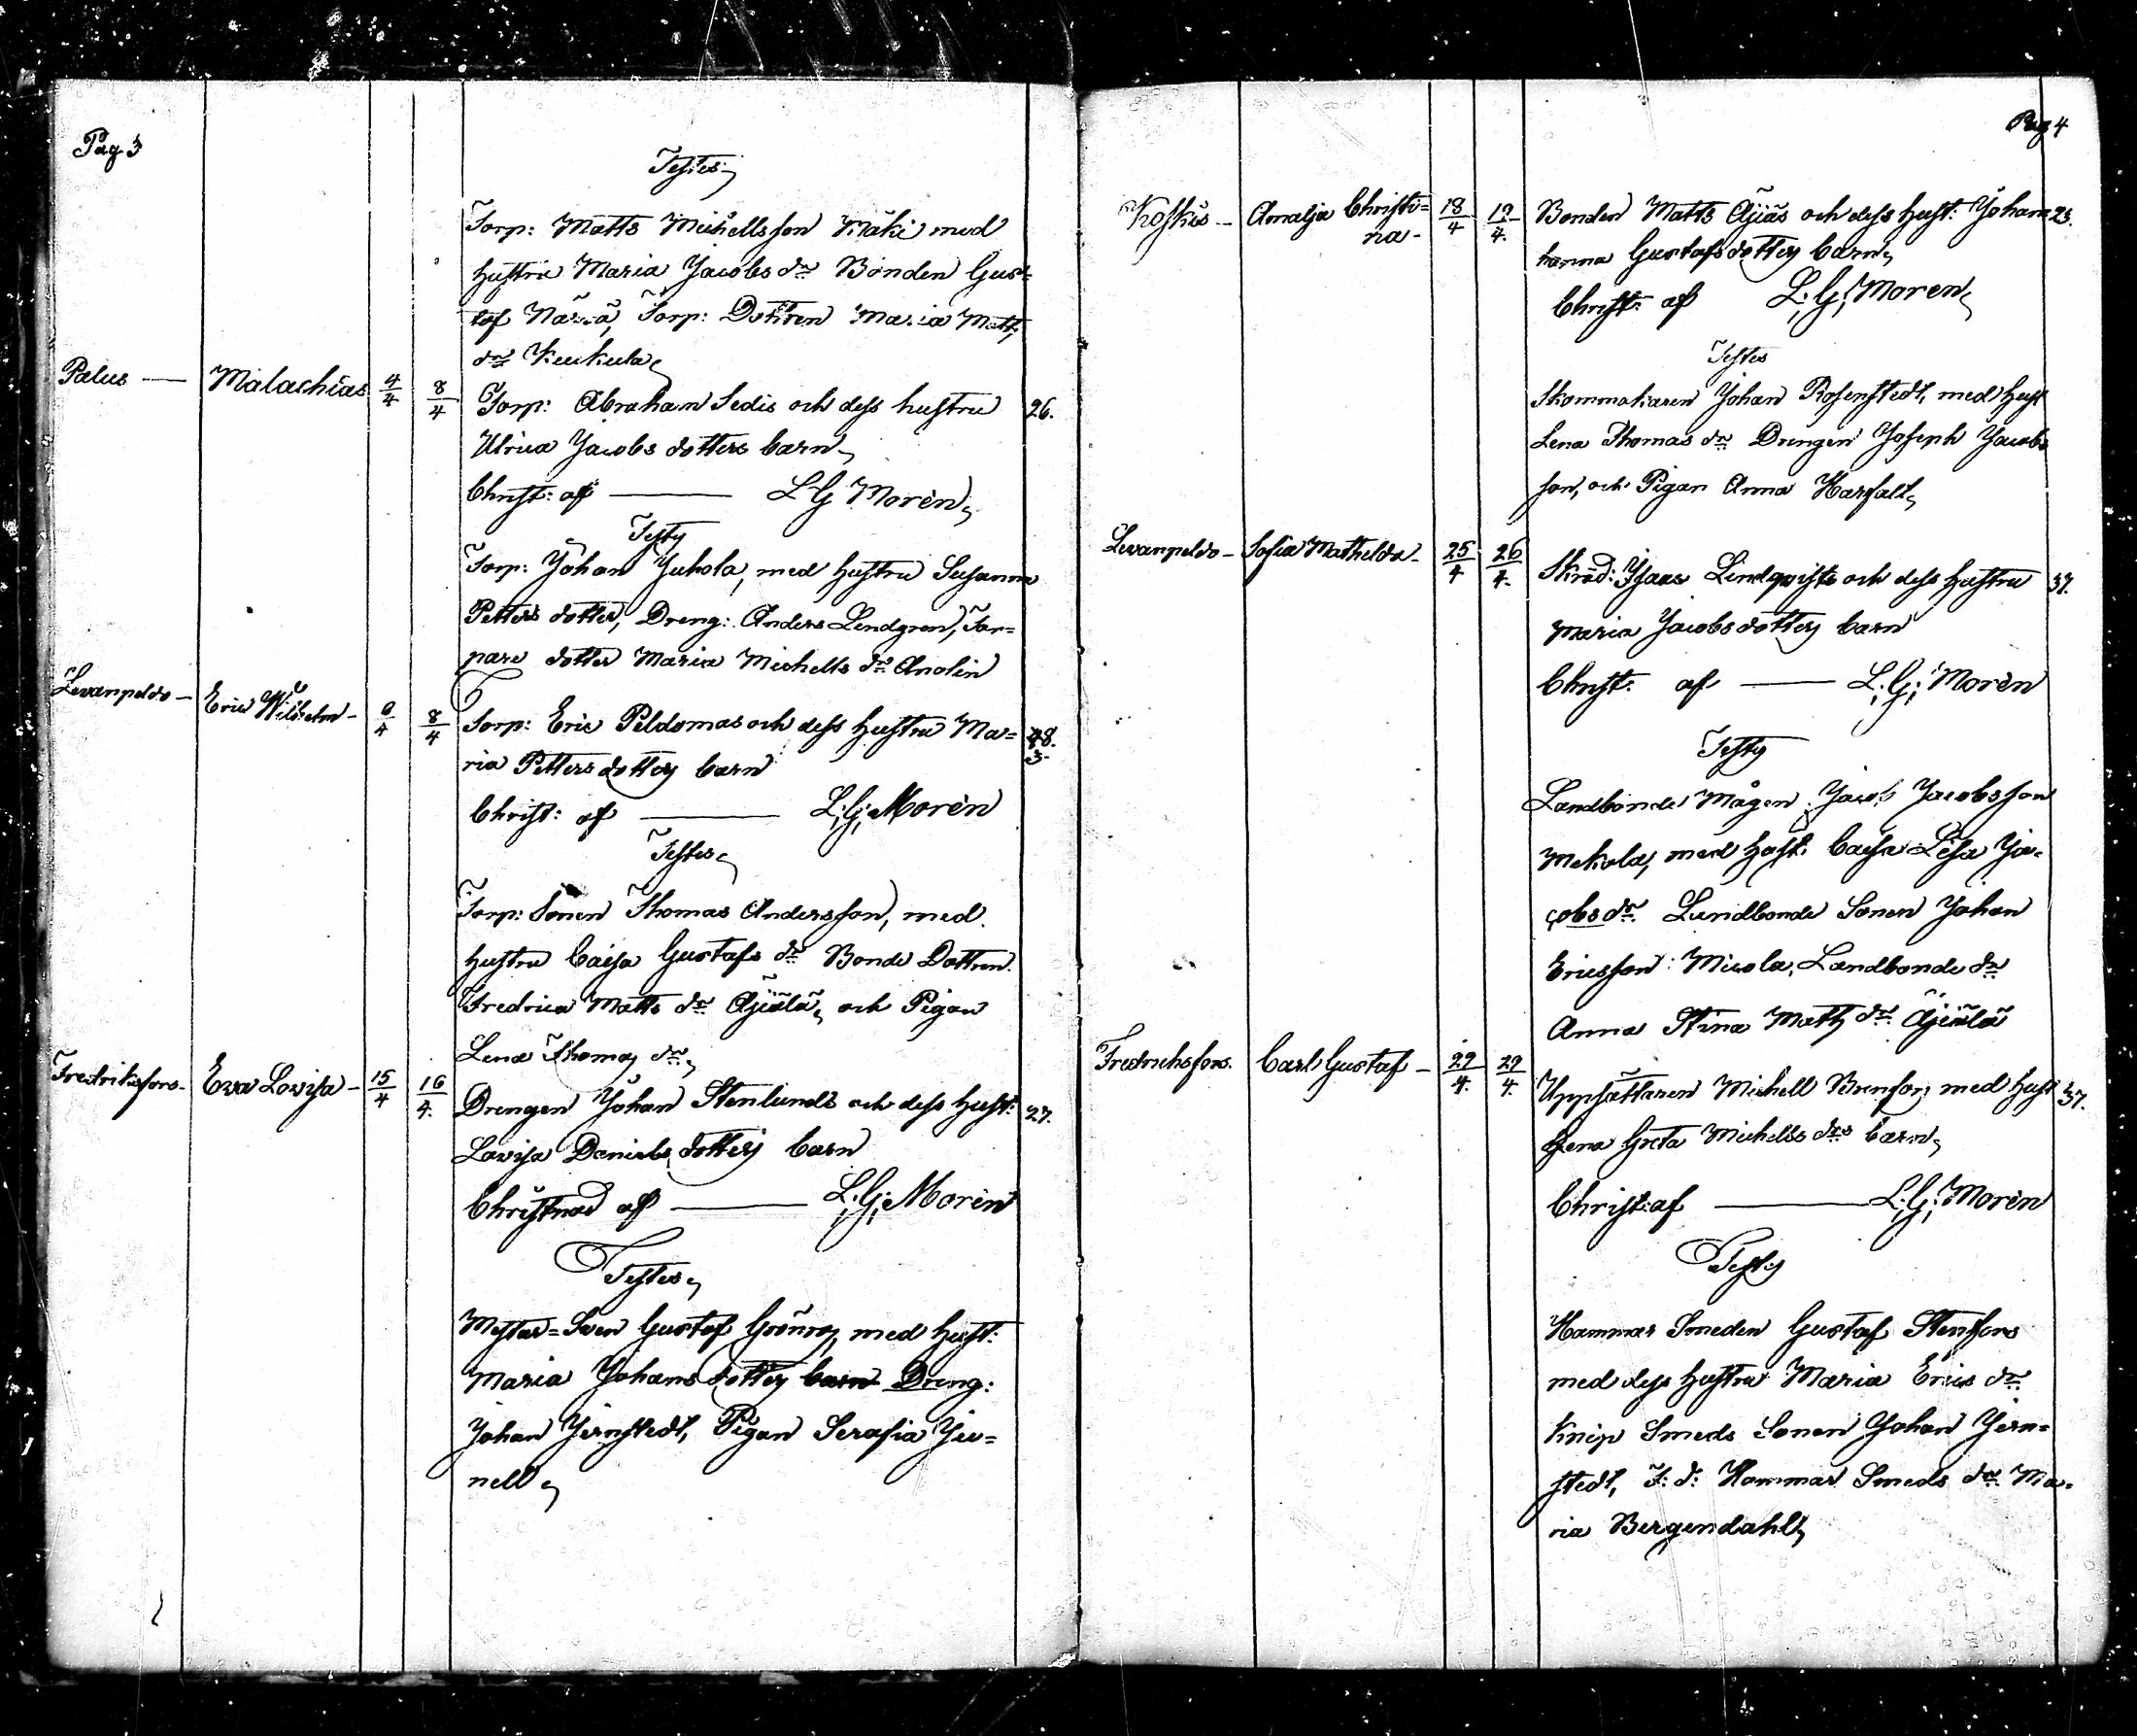 Pag 3
Testes
Torp: Matts Michellsson Mäki med
hustru Maria Jacobs dr Bonden Gus=
taf Torp: Dottren Maria Matts
dr Keukula
Palus — Malachias 4/4 8/4 Torp: Abraham Sedis och dess hustru 26.
Ulrica Jacobs dotters barn
Christ: af — L G Morén
Testes
Torp: Johan Juhola, med hustru Susanna
Petters dotter, Dreng: Anders Lendgren, Tor=
pare dotter Maria Michells dr Anolin
Levanpeldo — Eric Wilhelm — 6/4 8/4 Torp: Eric Peldomas och dess hustru Ma=
ria Petters dotters barn
Christ: af — L: G: Morén
Testes
Torp: Sonen Thomas Andersson, med
hustru Caisa Gustafs dr Bonde Dottren
Fredrica Matts dr Äjälä, och Pigan
Lena Thomas dr
Fredriksfors — Eva Lovisa — 15/4 16/4. Drengen Johan Stenlunds och dess hust: 27.
Lovisa Daniels dotters barn
Christnad af — L: G: Morén
Testes
Mästar=Sven Gustaf Grönros, med hust:
Maria Johans dotter barn Dreng:
Johan Jernstedt, Pigan Serafia Ju=
nell
Pag 4
Koskis — Amalja Christi= 18/4 19/4. Bonden Matts Äjiäs och dess hust: Johan 23.
na —
hanna Gustafs dotters barn
Christ: af L: G: Moren
Testes
Skommakaren Johan Rosenstedt, med hust
Lena Thomas dr Drengen Joseph Jacobs
son, och Pigan Anna Harfalt
Levanpeldo — Sofia Mathelda — 25/4 26/4. Skräd: Isaac Lindqvists och dess hustru 37.
Maria Jacobs dotters barn
Christ: af — L: G: Morén
Testes
Landbonde Mågen Jacob Jacobsson
Mekola, med hust: Caisa Lisa Ja=
cobs dr Lundbonde Sonen Johan
Ericsson Micola, Landbonde dr
Anna Stina Matts dr Äjälä
Fredrichsfors. Carl Gustaf — 29/4. 29/4. Uppsättaren Michell Brenfors med hust 37.
Lena Greta Michells drs barn
Christ: af — L: G: Morén
Testes
Hammar Smeden Gustaf Stenfors
med dess hustru Maria Erics dr
Knip Smeds Sonen Johan Jern=
stedt, T: d: Hammar Smeds dr Ma=
ria Bergendahl